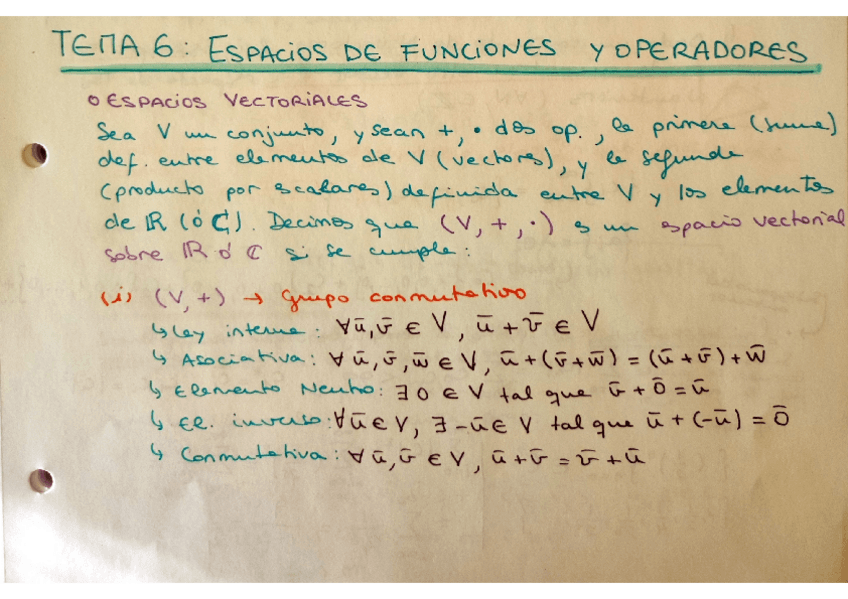 TEMA 6: ESPACIOS DE FUNCIONES Y OPERADORES
o ESPACIOS VECTORIALES
Sea V un conjunto, y sean +, · dos op., la primera (suma)
def. entre elementos de V (vectores), y la segunda
(producto por escalares) definida entre V y los elementos
de ℝ (ó ℂ). Decimos que (V, +, ·) es un espacio vectorial
sobre ℝ ó ℂ si se cumple:
(i) (V, +) → Grupo conmutativo
↳ Ley interna: ∀ū, v̄ ∈ V, ū + v̄ ∈ V
↳ Asociativa: ∀ ū, v̄, w̄ ∈ V, ū + (v̄ + w̄) = (ū + v̄) + w̄
↳ Elemento Neutro: ∃ 0 ∈ V tal que v̄ + 0̄ = ū
↳ El. inverso: ∀ū ∈ V, ∃ -ū ∈ V tal que ū + (-ū) = 0̄
↳ Conmutativa: ∀ ū, v̄ ∈ V, ū + v̄ = v̄ + ū